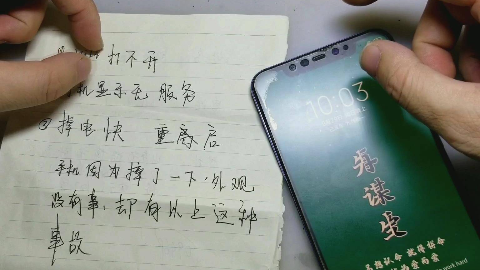 打不开
机显示无服务
②掉电快 重离启
手机因为摔了一下,外观
没有事,却有以上这种
事故
10:03
再谋生
work hard